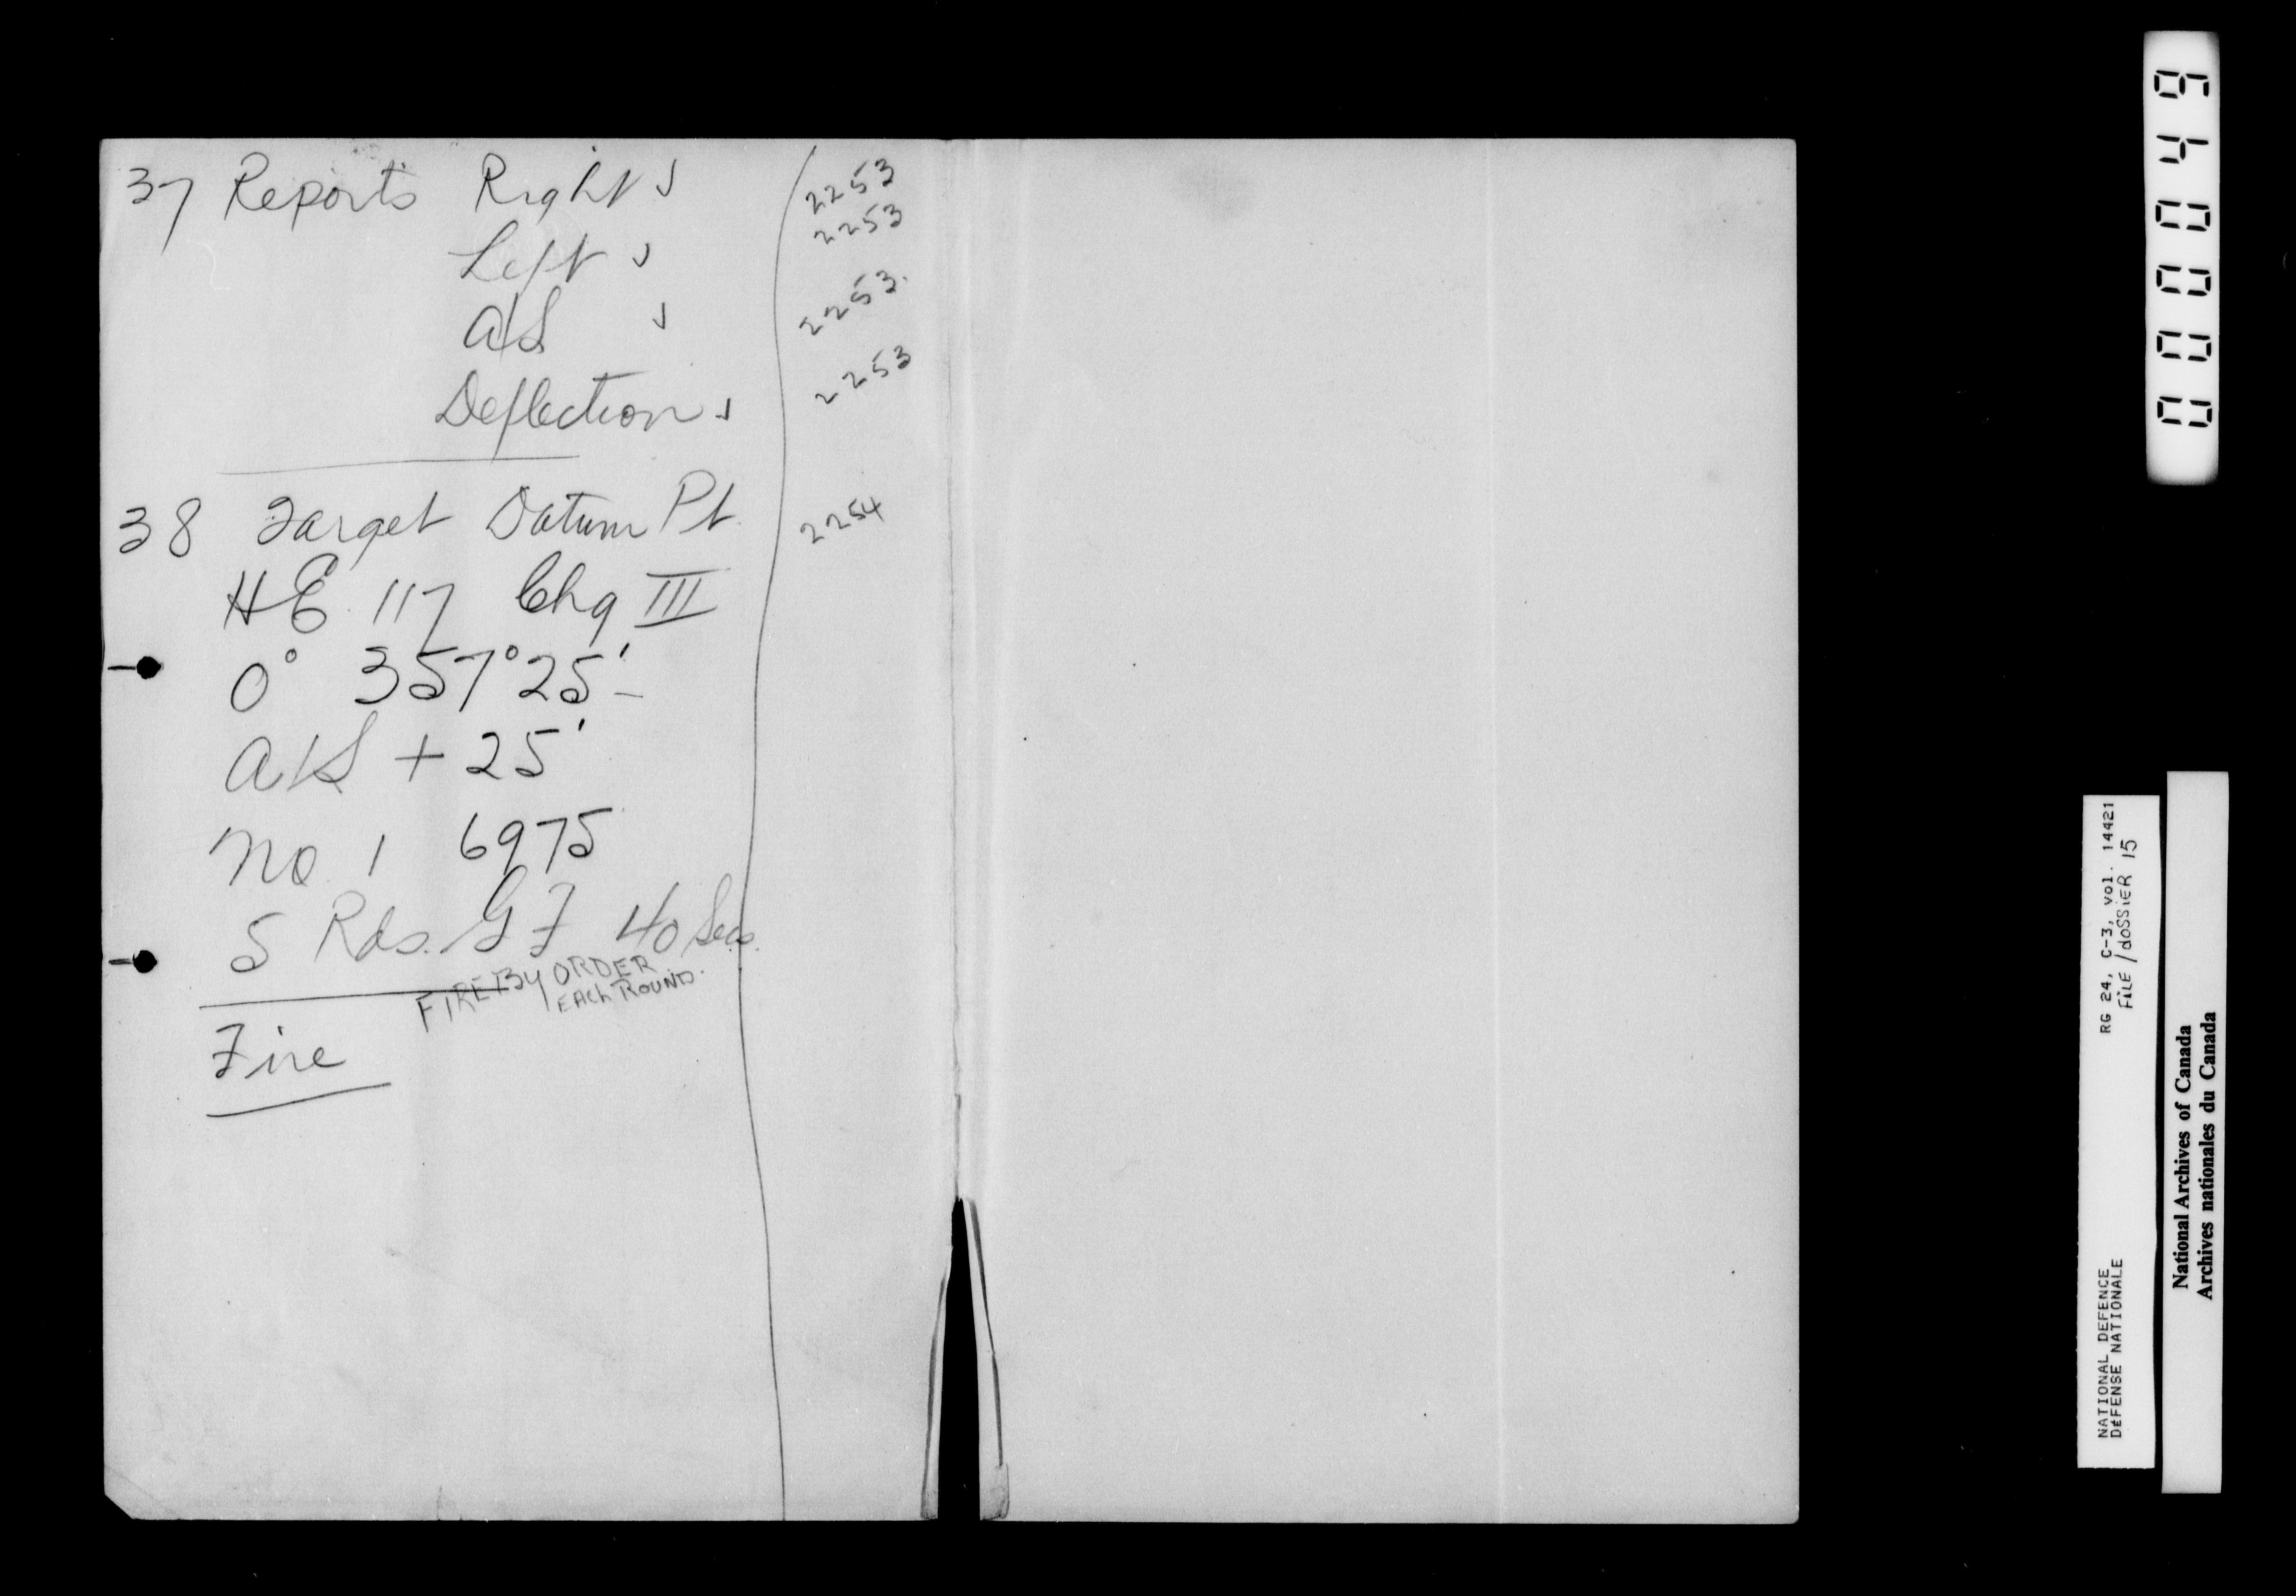 37 Reports Right ✓ 2253
Left ✓ 2253
A/S ✓ 2253.
Deflection ✓ 2253
38 Target Datum Pt. 2254
HE 117 Chg III
0° 357°25'
A/S + 25'
No 1 6975
5 Rds. G F 40 Secs.
FIRE BY ORDER
EACh ROUND.
Fire
000049
RG 24, C-3, vol. 14421
FiLE / dOSSiER 15
NATIONAL DEFENCE
DÉFENSE NATIONALE
National Archives of Canada
Archives nationales du Canada